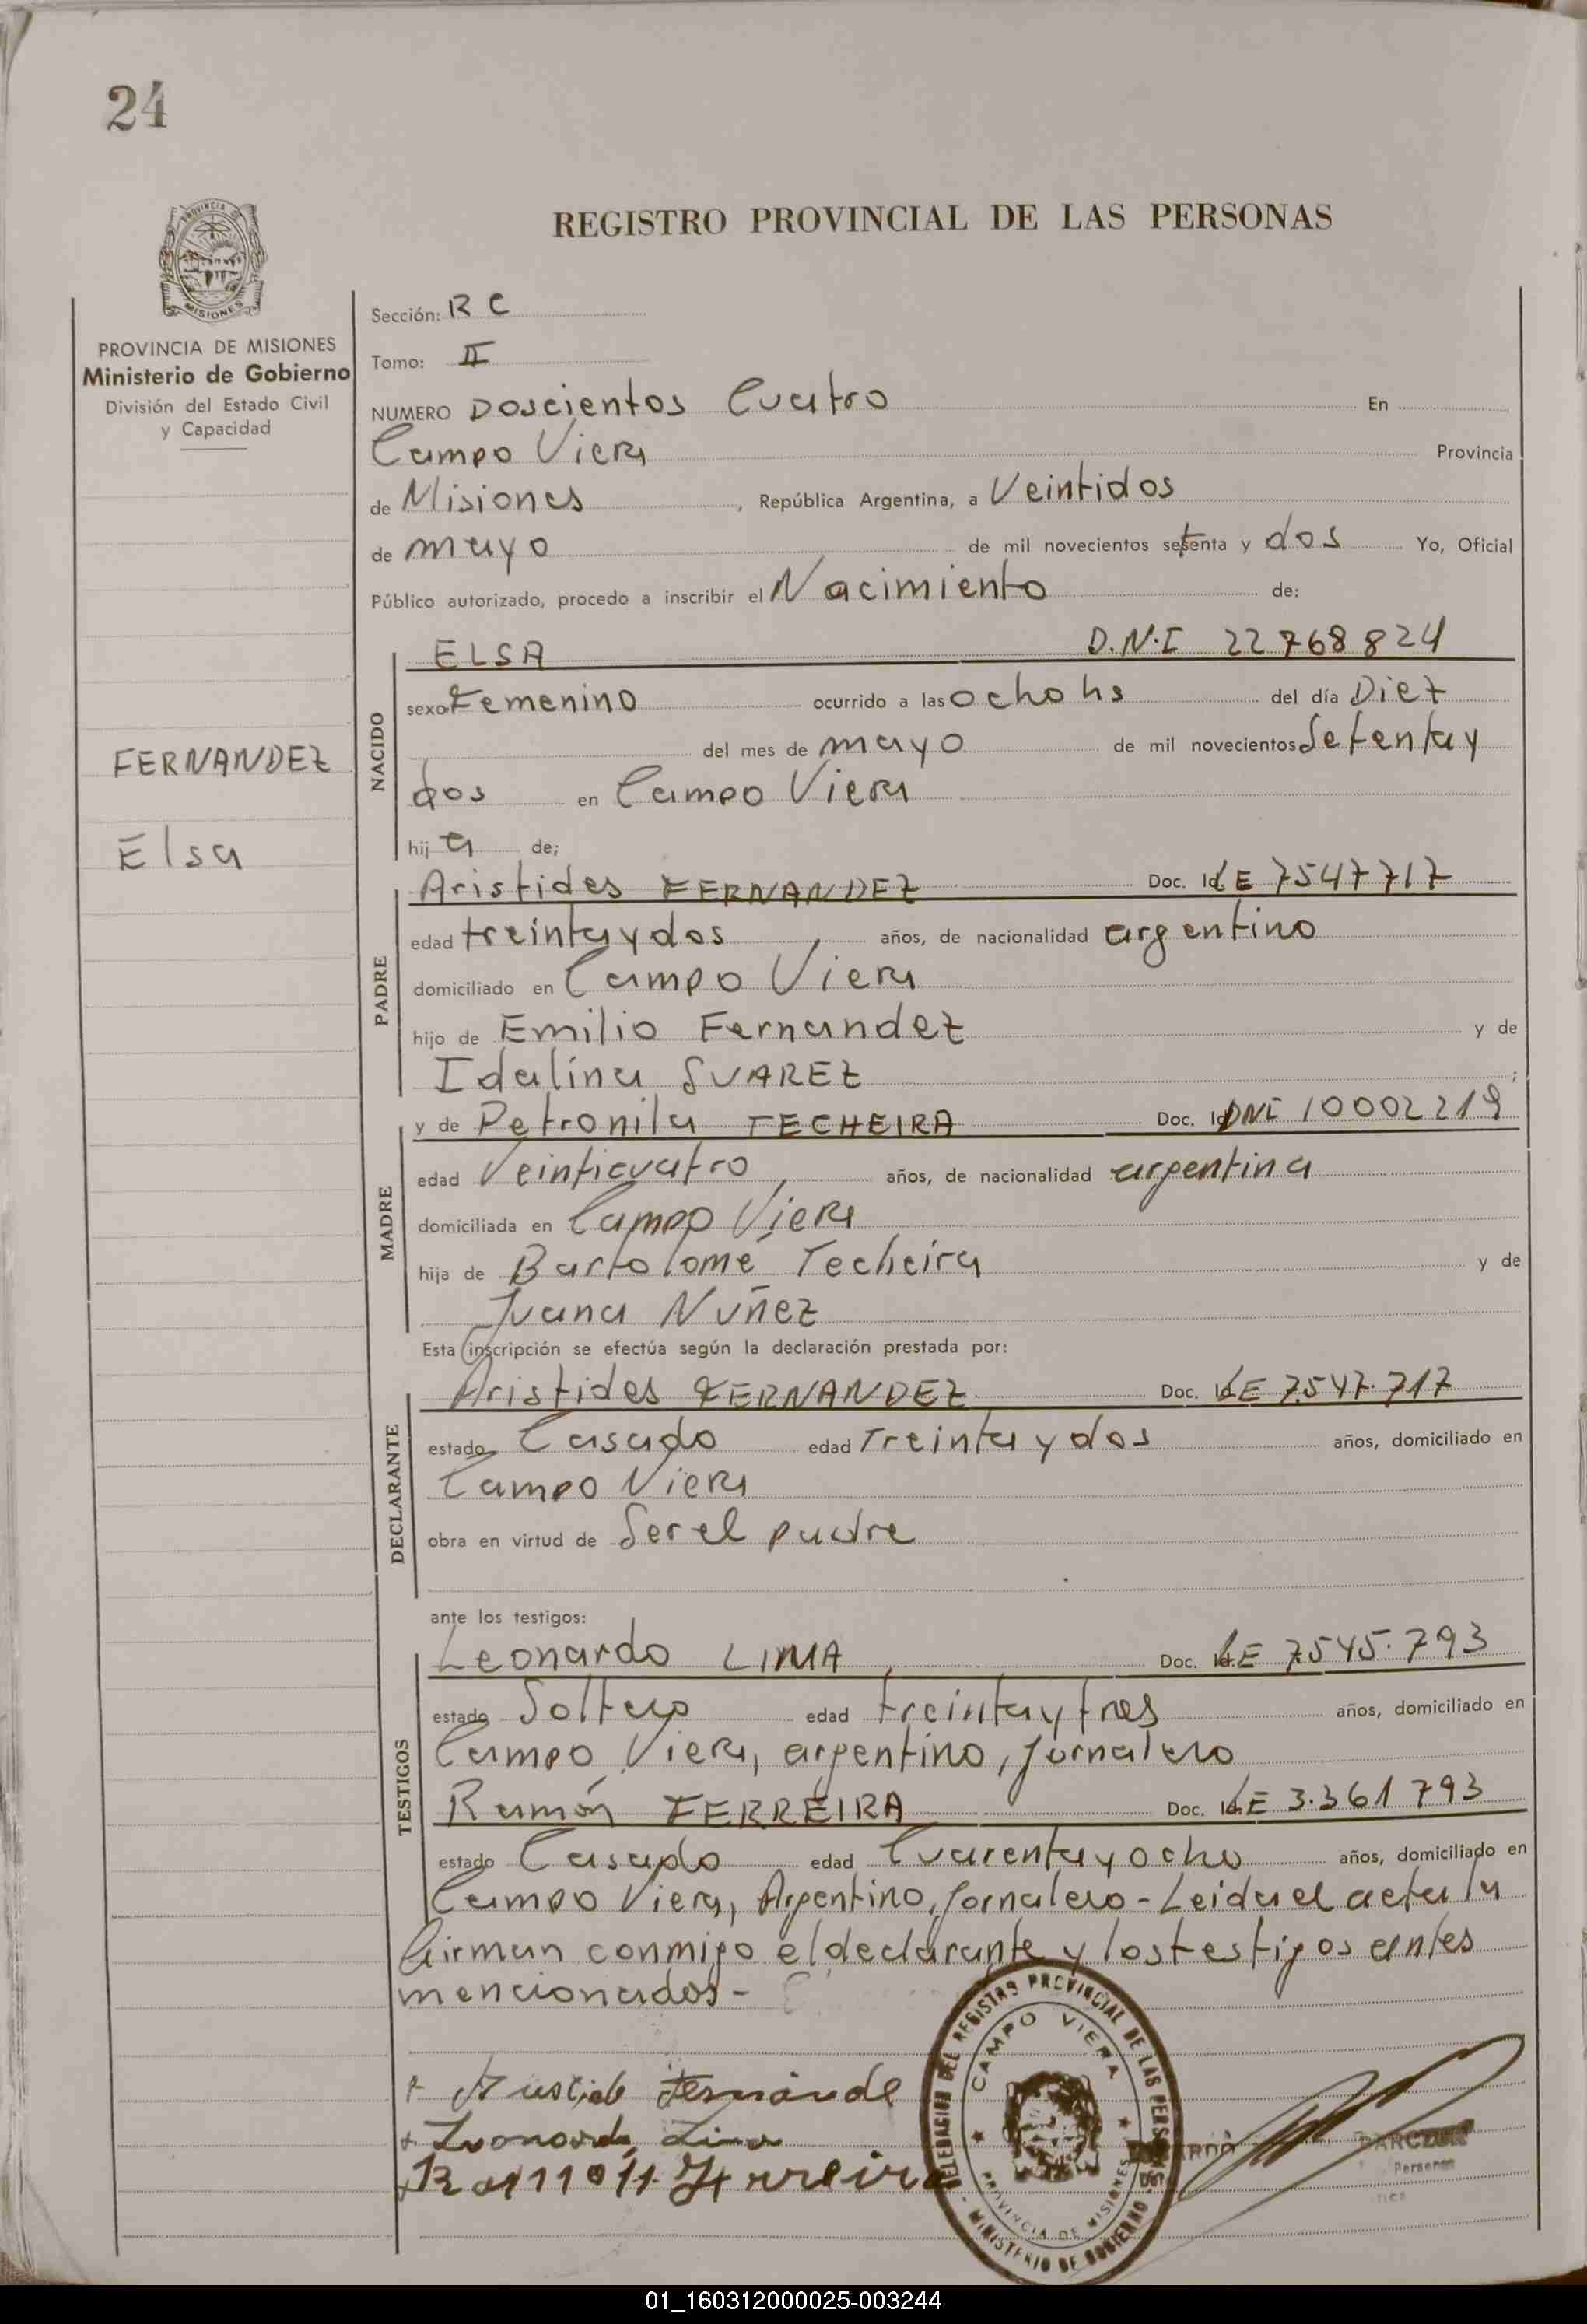 24
REGISTRO PROVINCIAL DE LAS PERSONAS
PROVINCIA DE MISIONES
Ministerio de Gobierno
División del Estado Civil
y Capacidad
FERNANDEZ
Elsa
Sección: R C
Tomo: II
NUMERO Doscientos Cuatro En
Campo Viera Provincia
de Misiones, República Argentina, a Veintidos
de mayo de mil novecientos setenta y dos Yo, Oficial
Público autorizado, procedo a inscribir el Nacimiento de:
NACIDO
ELSA D.N.I 22768824
sexo Femenino ocurrido a las ocho hs del día Diez
del mes de mayo de mil novecientos Setenta y
dos en Campo Viera
hij a de;
PADRE
Aristides FERNANDEZ Doc. Id LE 7547717
edad treinta y dos años, de nacionalidad argentino
domiciliado en Campo Viera
hijo de Emilio Fernandez y de
Idalina SUAREZ ;
MADRE
y de Petronila TECHEIRA Doc. Id DNI 10002219
edad Veinticuatro años, de nacionalidad argentina
domiciliada en Campo Viera
hija de Bartolomé Techeira y de
Juana Nuñez
Esta inscripción se efectúa según la declaración prestada por:
DECLARANTE
Aristides FERNANDEZ Doc. Id LE 7.547.717
estado Casado edad Treinta y dos años, domiciliado en
Campo Viera
obra en virtud de Ser el padre
ante los testigos:
TESTIGOS
Leonardo LIMA Doc. Id LE 7.545.793
estado Soltero edad treinta y tres años, domiciliado en
Campo Viera, argentino, jornalero
Ramón FERREIRA Doc. Id LE 3.361793
estado Casado edad Cuarenta y ocho años, domiciliado en
Campo Viera, Argentino, jornalero - Leida el acta la
firman conmigo el declarante y los testigos antes
mencionados -
Fernánde
Leonardo Lima
Ramon Ferreira
DELEGACION DEL REGISTRO PROVINCIAL DE LAS PERSONAS
CAMPO VIERA
PROVINCIA DE MISIONES
MINISTERIO DE GOBIERNO
01_160312000025-003244